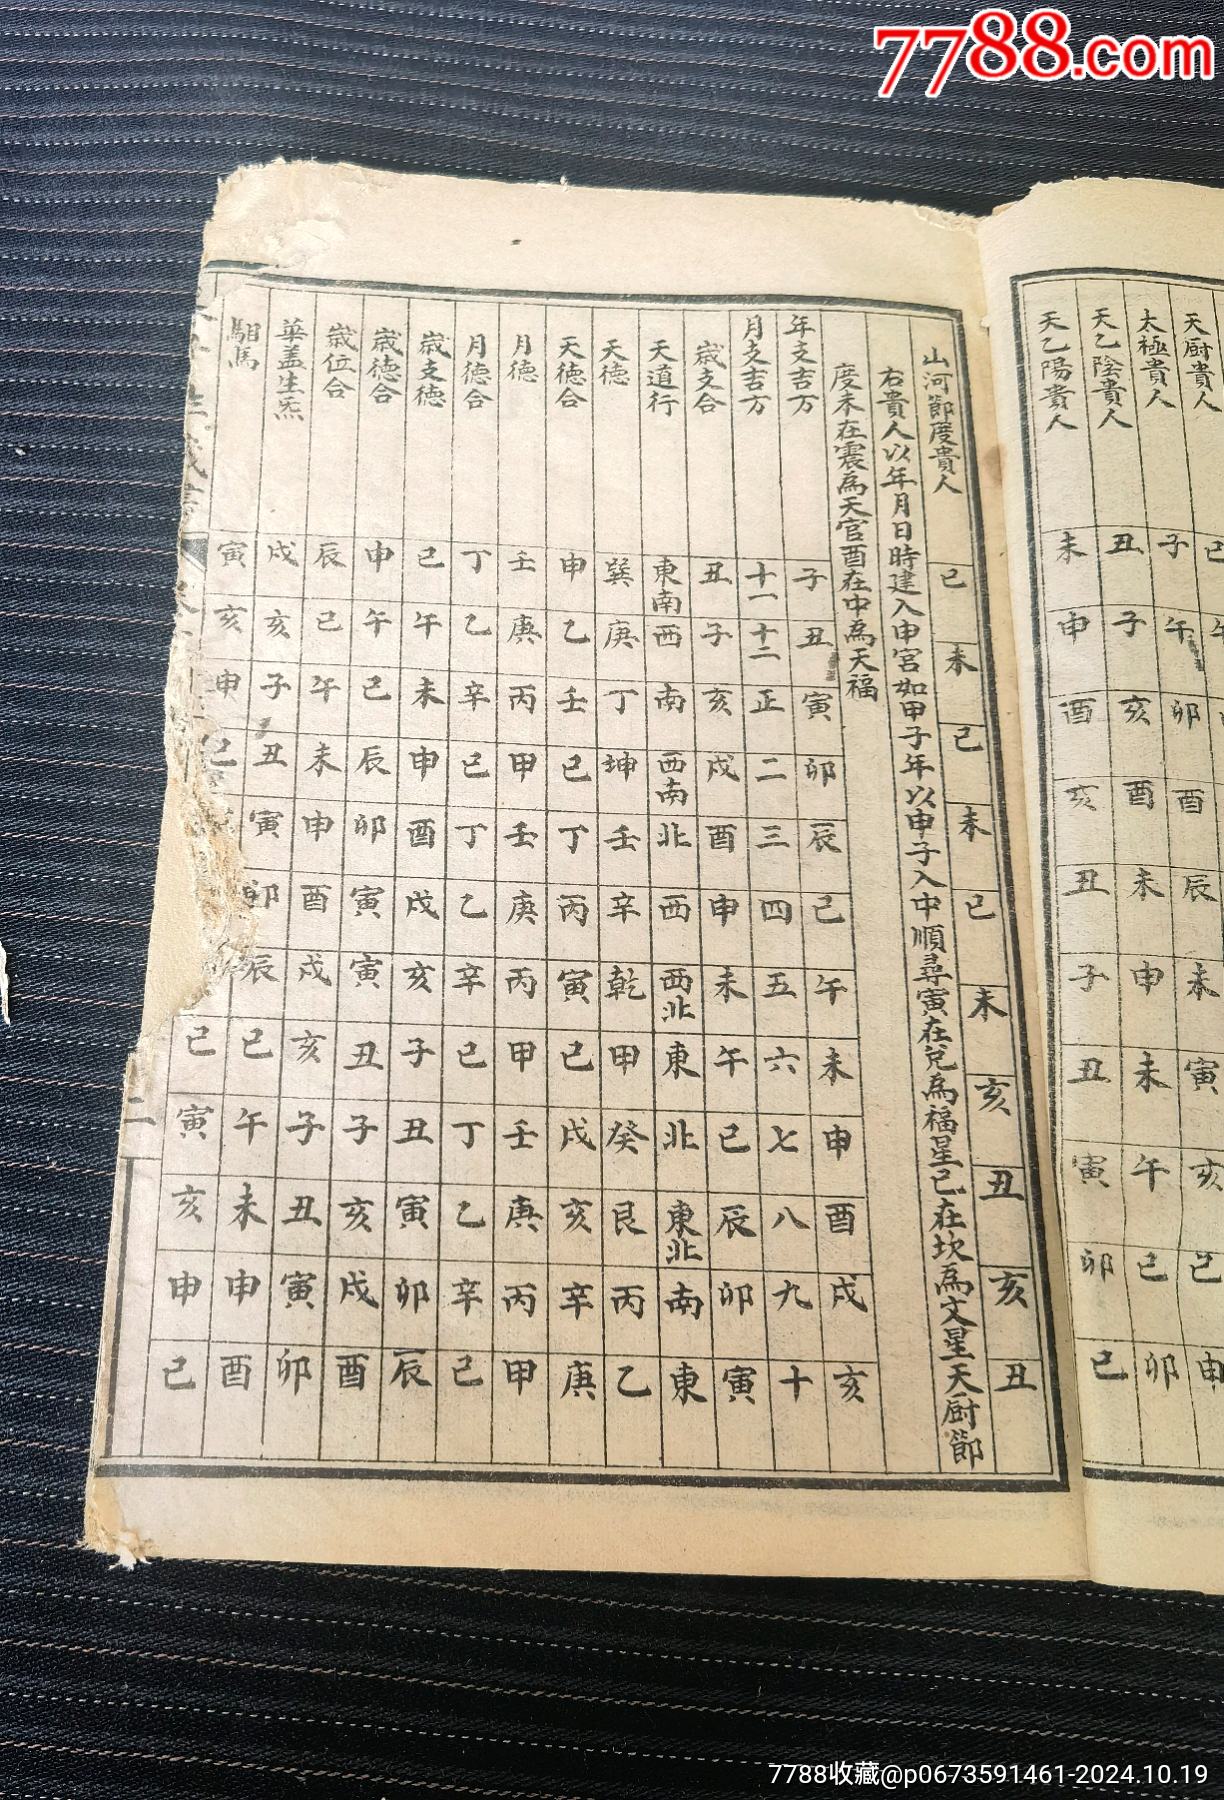 7788.com
天厨貴人
太極貴人 子 午 卯 酉 辰 未 寅 亥 巳 申
天乙陰貴人 丑 子 亥 酉 未 申 未 午 巳 卯
天乙陽貴人 未 申 酉 亥 丑 子 丑 寅 卯 巳
山河節度貴人 巳 未 巳 未 巳 未 亥 丑 亥 丑
右貴人以年月日時建入中宮如甲子年以甲子入中順尋寅在兌為福星巳在坎為文星天厨節
度未在震為天官酉在中為天福
年支吉方 子 丑 寅 卯 辰 巳 午 未 申 酉 戌 亥
月支吉方 十一 十二 正 二 三 四 五 六 七 八 九 十
歲支合 丑 子 亥 戌 酉 申 未 午 巳 辰 卯 寅
天道行 東南 西 南 西南 北 西 西北 東 北 東北 南 東
天德 巽 庚 丁 坤 壬 辛 乾 甲 癸 艮 丙 乙
天德合 申 乙 壬 巳 丁 丙 寅 己 戌 亥 辛 庚
月德 壬 庚 丙 甲 壬 庚 丙 甲 壬 庚 丙 甲
月德合 丁 乙 辛 己 丁 乙 辛 己 丁 乙 辛 己
歲支德 巳 午 未 申 酉 戌 亥 子 丑 寅 卯 辰
歲德合 申 午 巳 辰 卯 寅 寅 丑 子 亥 戌 酉
歲位合 辰 巳 午 未 申 酉 戌 亥 子 丑 寅 卯
華盖生炁 戌 亥 子 丑 寅 卯 辰 巳 午 未 申 酉
馹馬 寅 亥 申 巳 巳 寅 亥 申 巳
二
7788收藏@p0673591461-2024.10.19